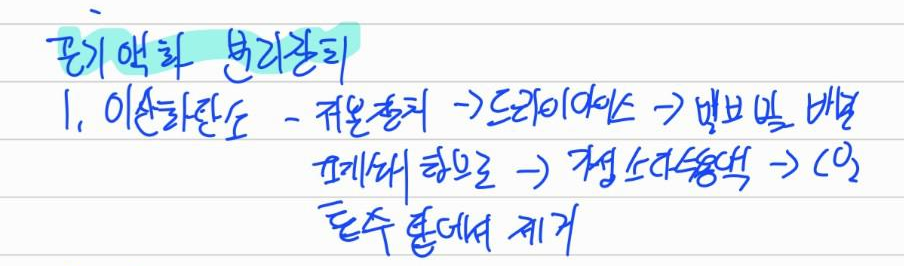 공기액화 분리장치
1. 이산화탄소 - 저온장치 → 드라이아이스 → 밸브 및 배관
폐쇄 함으로 → 가성소다수용액 → CO₂
흡수 탑에서 제거